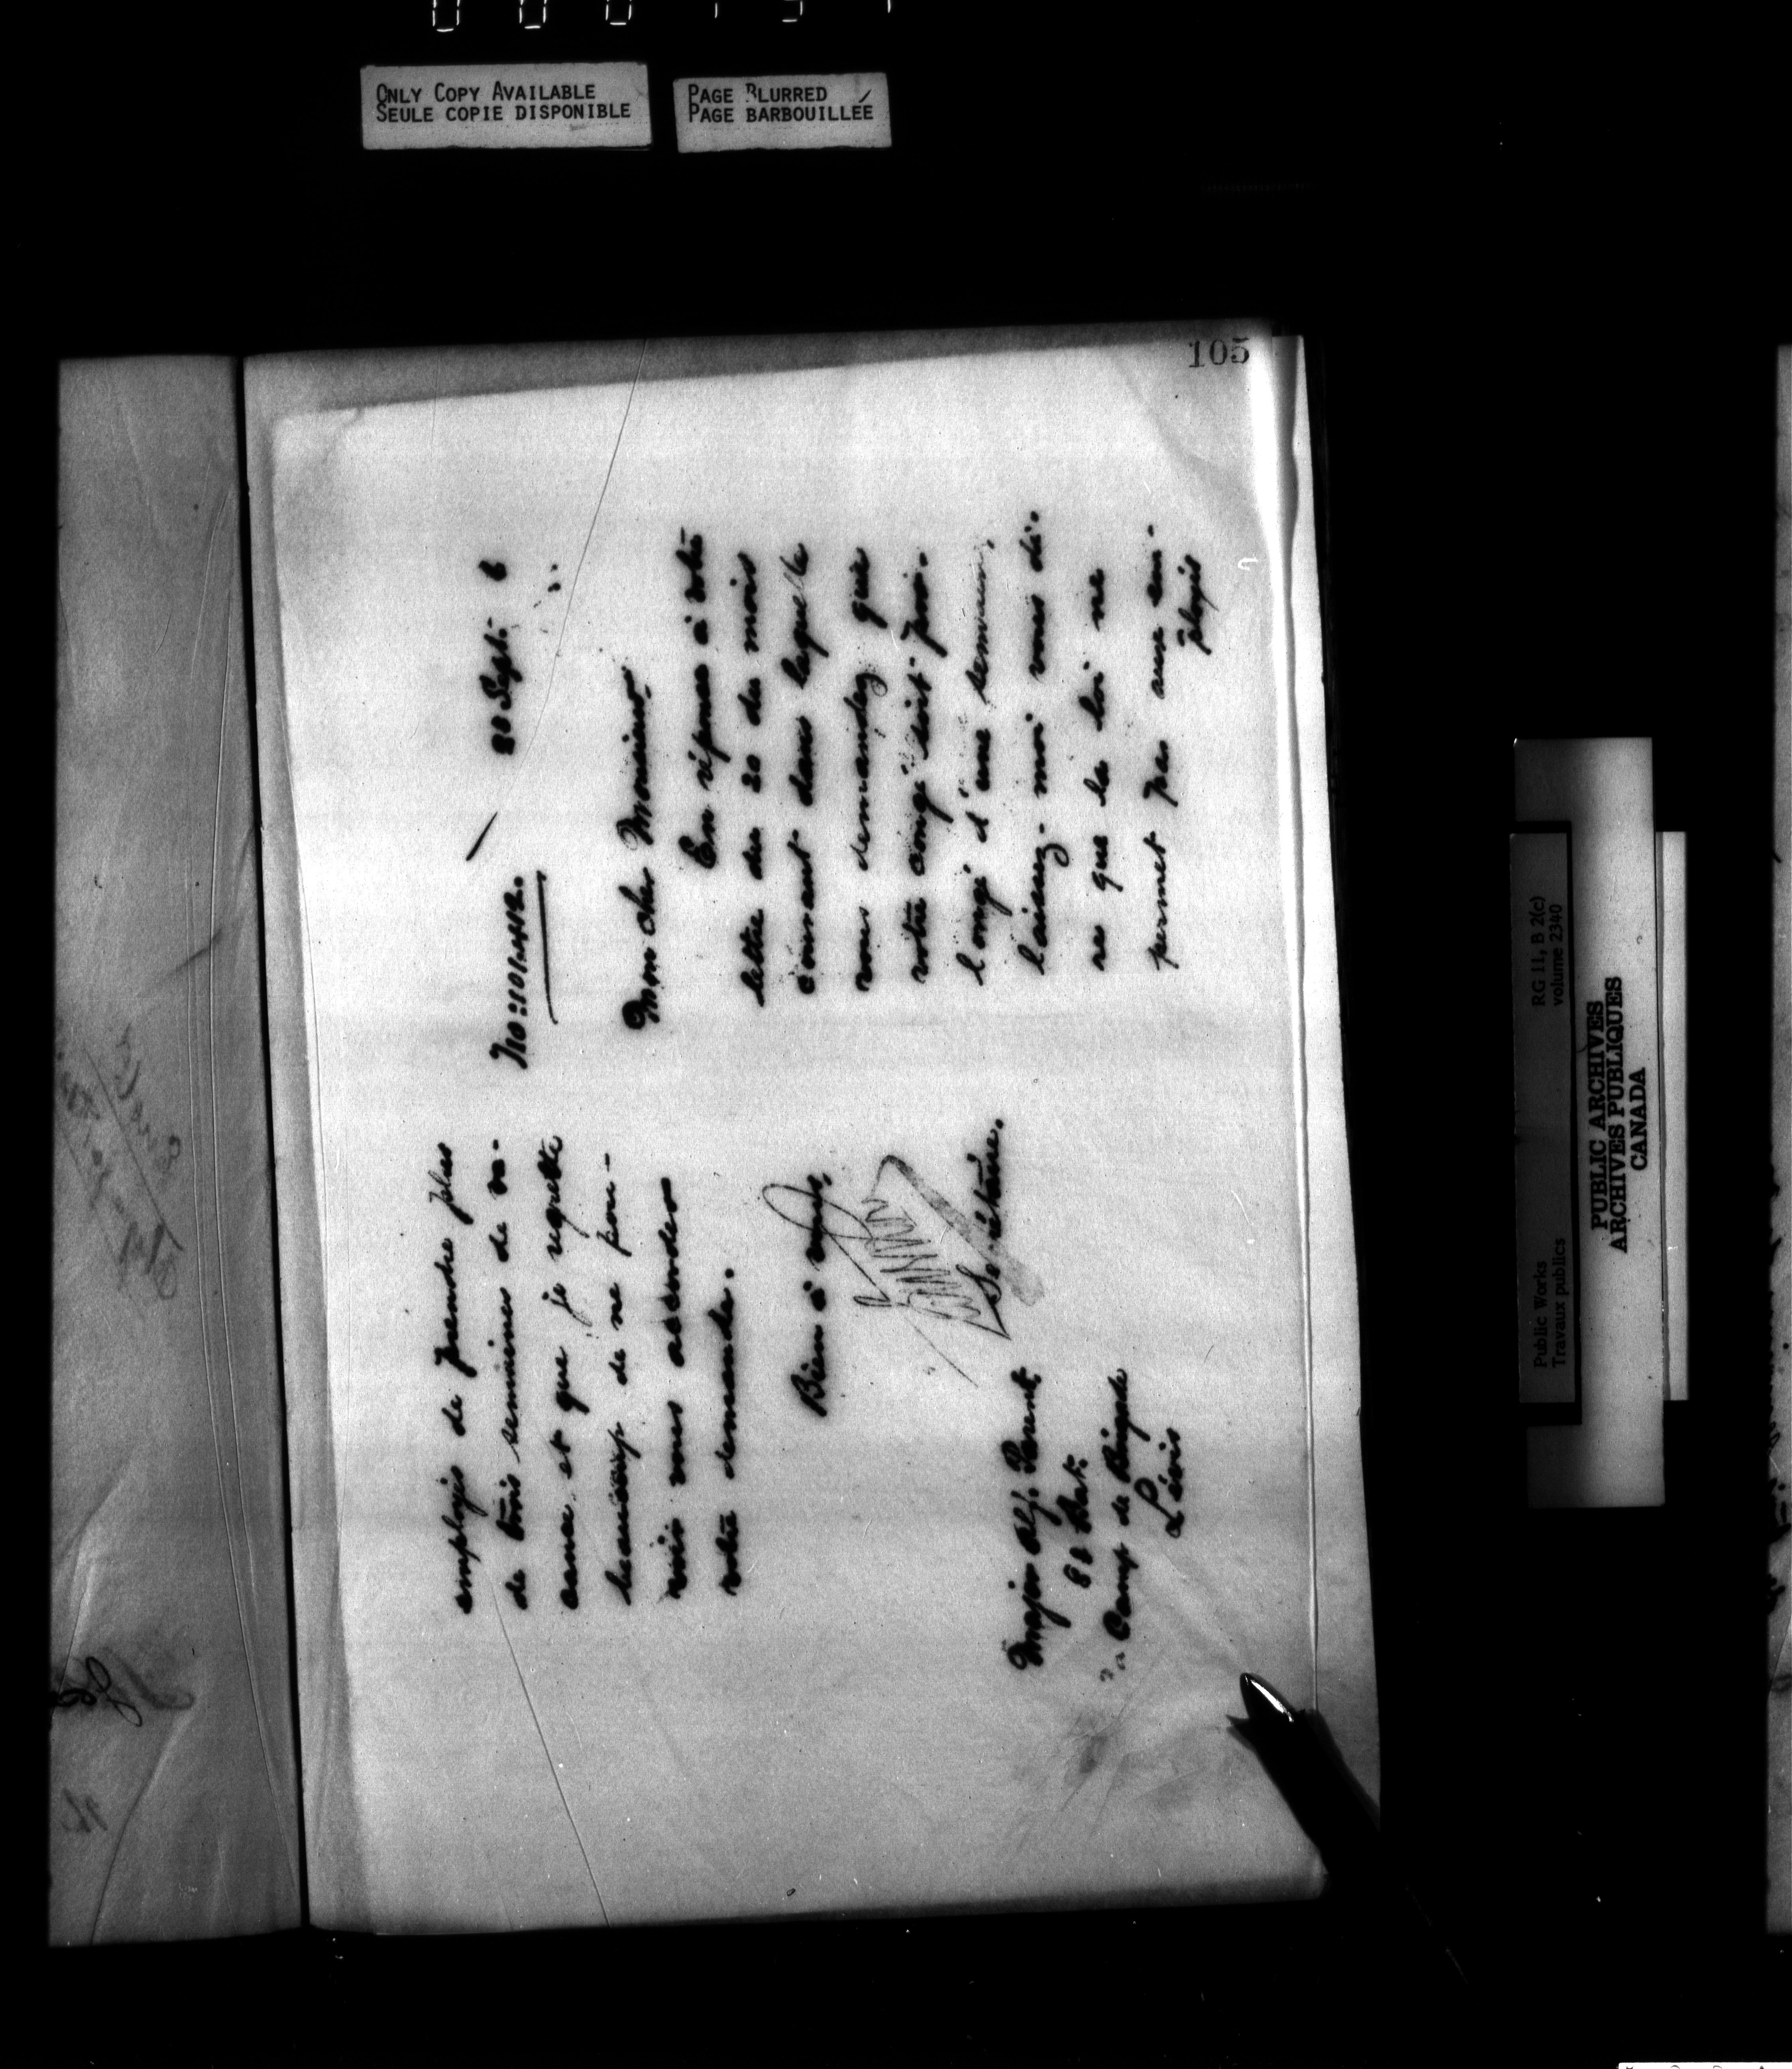 ONLY COPY AVAILABLE
SEULE COPIE DISPONIBLE
PAGE BLURRED
PAGE BARBOUILLÉE
105
Sept. 6
Mon cher Monsieur
En réponse à votre
lettre du 20 du mois
courant dans laquelle
vous demandez que
votre congé soit pro-
longé d'une semaine,
laissez-moi vous di-
re que la loi ne
permet pas aux em-
ployés
employés de prendre plus
de trois semaines de va-
cance et que je regrette
beaucoup de ne pou-
voir vous accorder
votre demande.
Bien à vous,
Secrétaire.
Major Alf. Parent
Bat.
Camp de Brigade
Lévis
Public Works
Travaux publics
RG 11, B 2(c)
volume 2340
PUBLIC ARCHIVES
ARCHIVES PUBLIQUES
CANADA